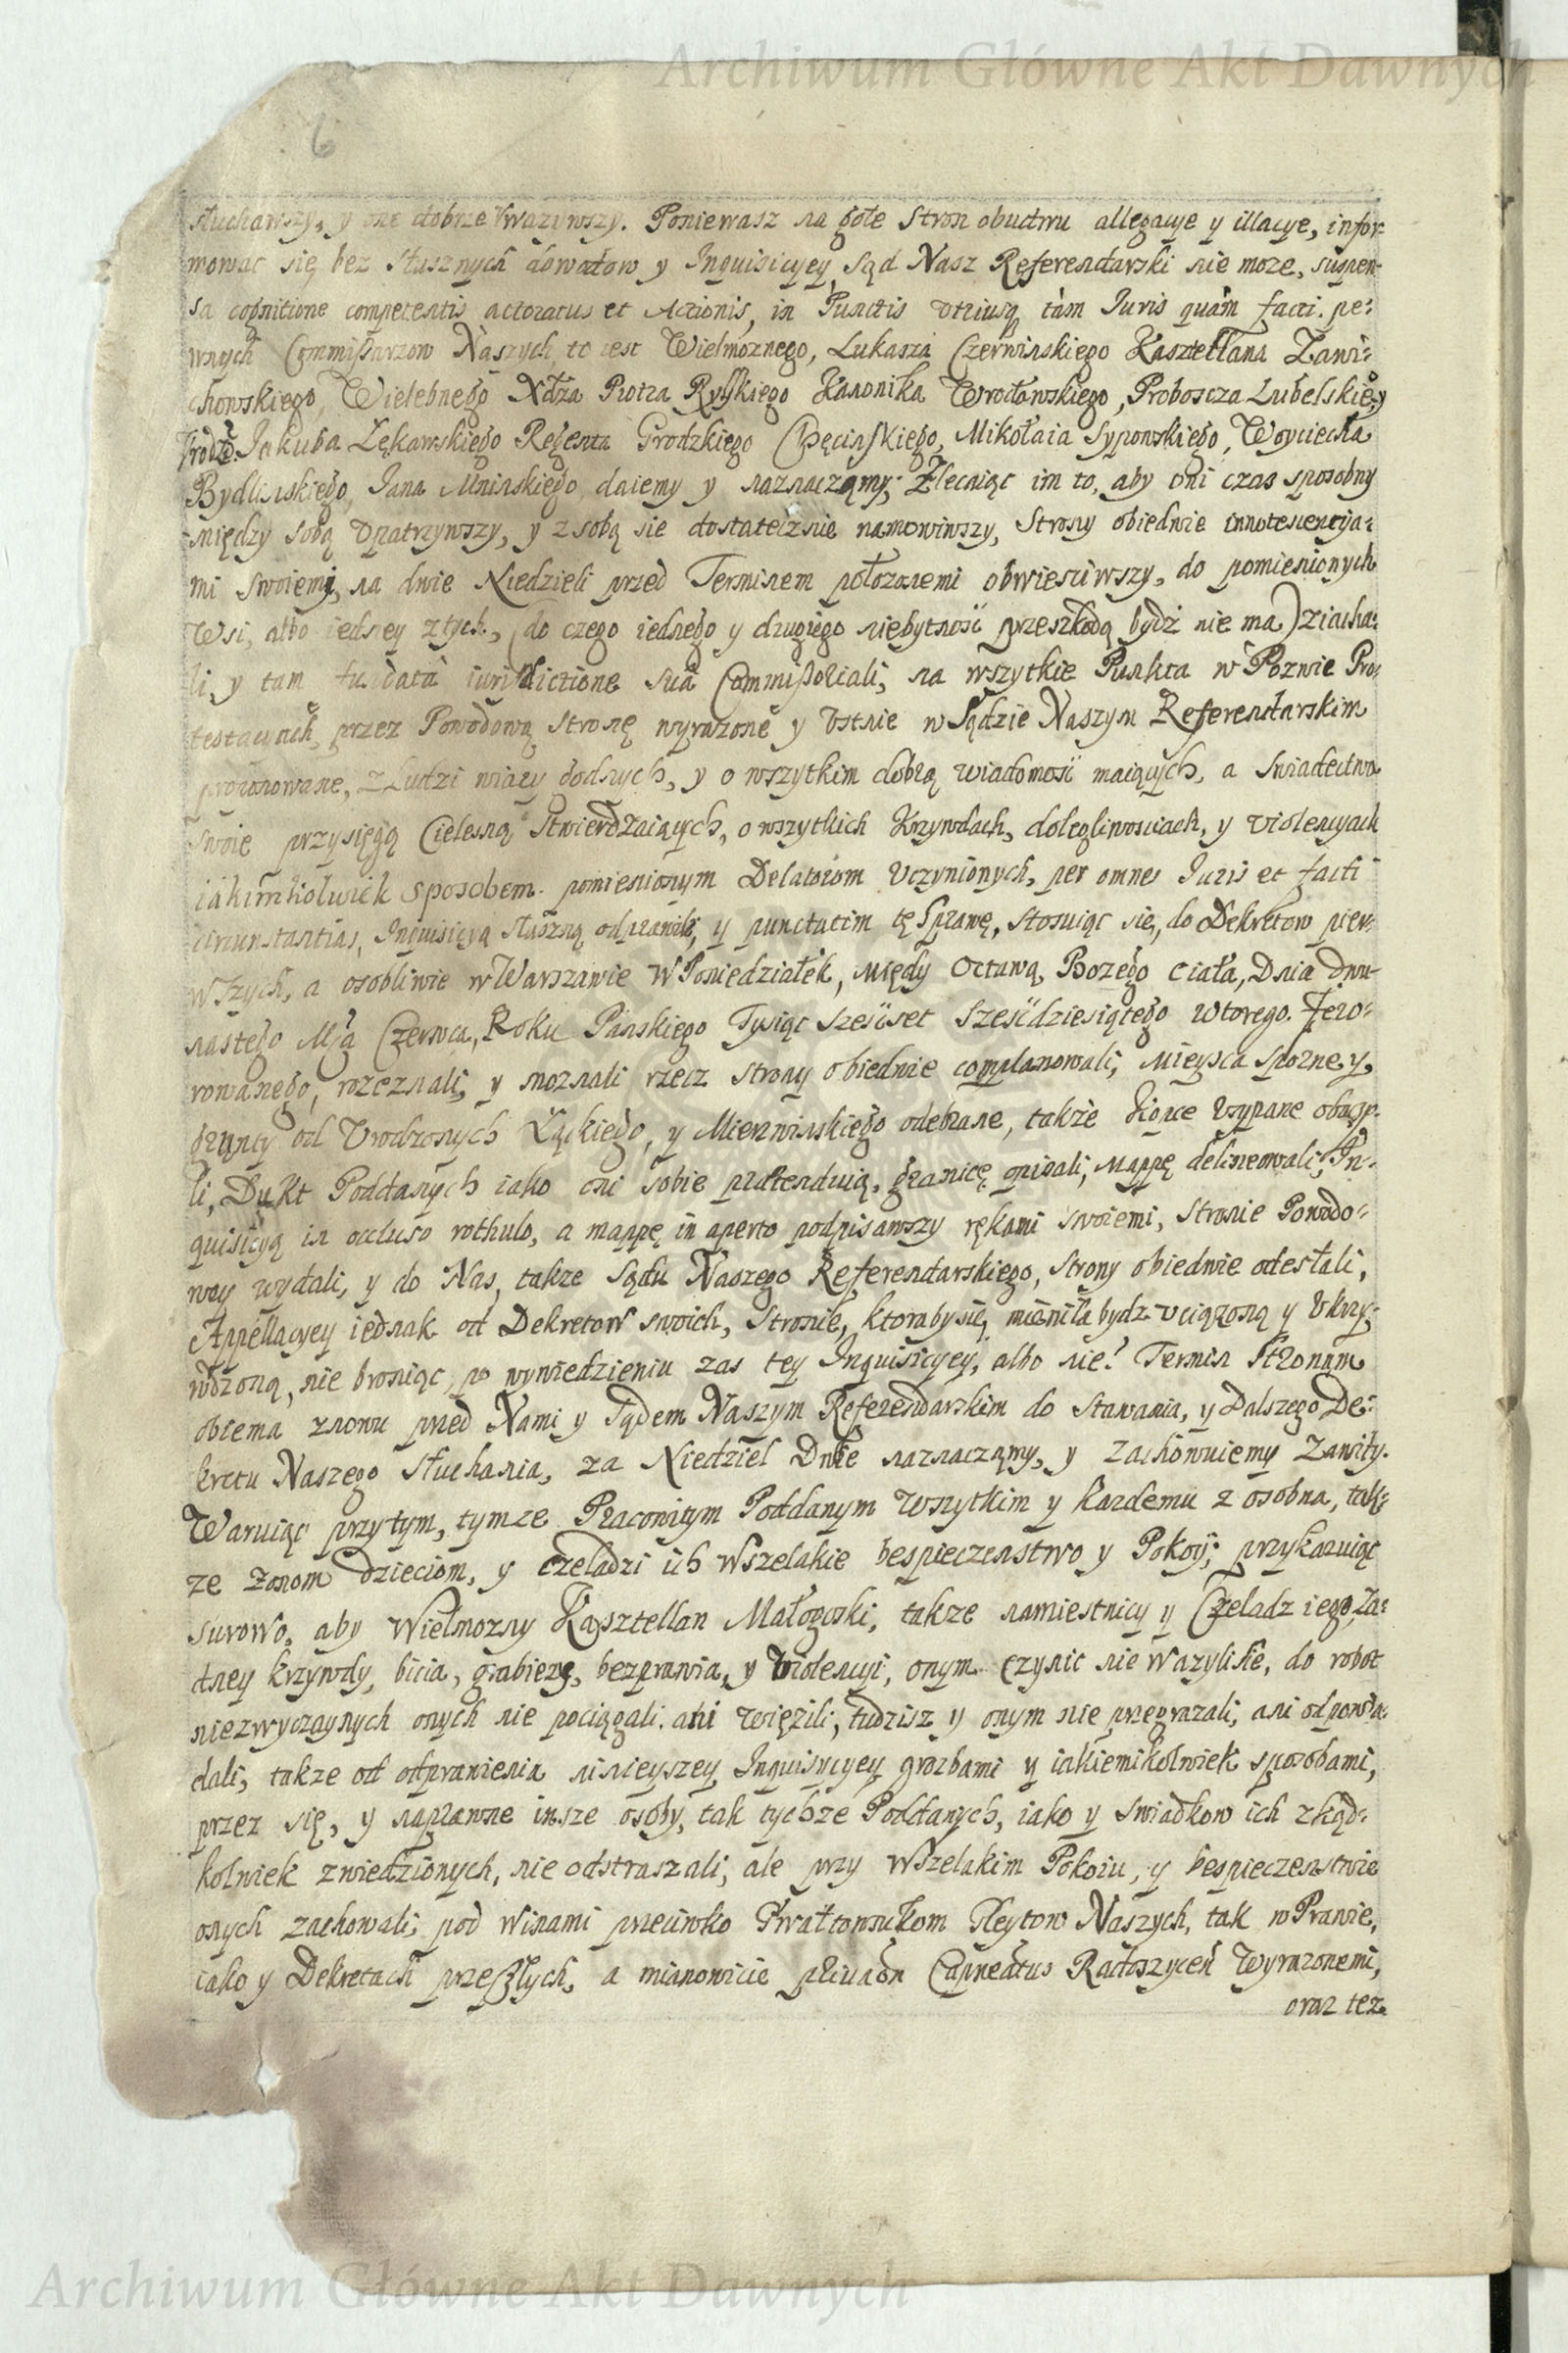 Archiwum Główne Akt Dawnych
6
słuchawszy, y one dobrze Vwazywszy. Poniewasz na gołe Stron obudwu allegacye y illacye, infor-
mowac się bez słusznych dowodow y Inquisicyey Sąd Nasz Referendarski nie moze, suspen-
sa cognitione competentis actoratus et Actionis, in Punctis vtriusq tàm Iuris quàm facti. pe-
wnych Commissarzow Naszych to iest Wielmoznego, Lukasza Czerwinskiego Kasztellana Zawi-
chowskiego, Wielebnego Xdza Piotra Ryskiego Kanonika Wrocławskiego, Proboscza Lubelskiego,
Vrodz: Jakuba Łękawskiego Regenta Grodzkiego Chęcinskiego, Mikołaia Sypowskiego, Woyciecha
Bydlinskiego, Jana Mninskiego, daiemy y naznaczamy; Zlecaiąc im to, aby oni czas sposobny
między sobą vpatrzywszy, y z sobą sie dostatecznie namowiwszy, Strony obiednie innotescencya-
mi swoiemi, na dwie Niedzieli przed Terminem połozonemi obwiesciwszy, do pomienionych
Wsi, albo iedney z tych, (do czego iednego y drugiego niebytnosć przeszkodą bydź nie ma) ziacha-
li, y tam fundata iurisdictione sua Commissoriali, na wszytkie Punkta w Pozwie Pro-
testacyach, przez Powodową stronę wyrazone y Vstnie w Sądzie Naszym Referendarskim
proponowane, z Ludzi wiary godnych, y o wszytkim dobrą wiadomosć maiących, a Swiadectwa
swoie przysięgą Cielesną Stwierdzaiących, o wszytkich Krzywdach, dolegliwosciach, y violencyach
iakimkolwiek sposobem pomienionym Delatorom Vczynionych, per omnes Iuris et facti
circunstantias, Inquisicyą słuszną odprawili, y punctatim tę Sprawę, stosuiąc się, do Dekretow pier-
wszych, a osobliwie w Warszawie w Poniedziałek, między Octawą Bozego Ciała, Dnia dwu-
nastego Mca Czerwca, Roku Panskiego Tysiąc szescset szescdziesiątego wtorego. Fero-
rowanego, rozeznali, y moznali rzecz strony obiednie complanowali; mieysca sporne y,
grunty od Vrodzonych Łąckiego, y Mierzwinskiego odebrane, takze kopce Vsypane obacz-
li, Dukt Poddanych iako oni sobie praetenduią, granicę opisali, Mappę delineowali; In-
quisicyą in occluso rothulo, a mappę in aperto podpisawszy rękami swoiemi, stronie Powodo-
wey wydali, y do Nas, takze Sądu Naszego Referendarskiego, strony obiednie odesłali,
Appellacyey iednak od Dekretow swoich, stronie, ktoraby się mieniła bydz vciązoną y Vkrzy-
wdzoną, nie broniąc, po wywiedzieniu zas tey Inquisicyey, albo nie! Termin Stronom
obiema znowu przed Nami y Sądem Naszym Referendarskim do Stawania, y Dalszego De-
kretu Naszego słuchania, za Niedziel Dwie naznaczamy, y zachowuiemy Zawity.
Waruiąc przytym, tymze Pracowitym Poddanym wszytkim y kazdemu z osobna, tak-
ze zonom dzieciom, y czeladzi ich wszelakie bespieczenstwo y Pokoy; przykazuiąc
surowo, aby Wielmozny Kasztellan Małogoski, takze namiestnicy y Czeladz iego, Za-
dney krzywdy, bicia, grabiezy, bezprawia, y violencyi, onym czynic nie wazyli sie, do robot
niezwyczaynych onych nie pociągali, ani więzili, tudzisz y onym nie przegrazali; ani odpowia-
dali, takze od odprawienia ninieyszey Inquisycyey grozbami y iakiemikolwiek sposobami,
przez się, y naprawne insze osoby, tak tychze Poddanych, iako y swiadkow ich zkąd-
kolwiek zwiedzionych, nie odstraszali, ale przy wszelakim Pokoiu, y bespieczenstwie
onych zachowali; pod winami przeciwko Gwałtownikom Gleytow Naszych, tak w Prawie,
iako y Dekretach przeszłych, a mianowicie Capneatus Radoszyceń wyrazonemi,
oraz tez
Archiwum Główne Akt Dawnych